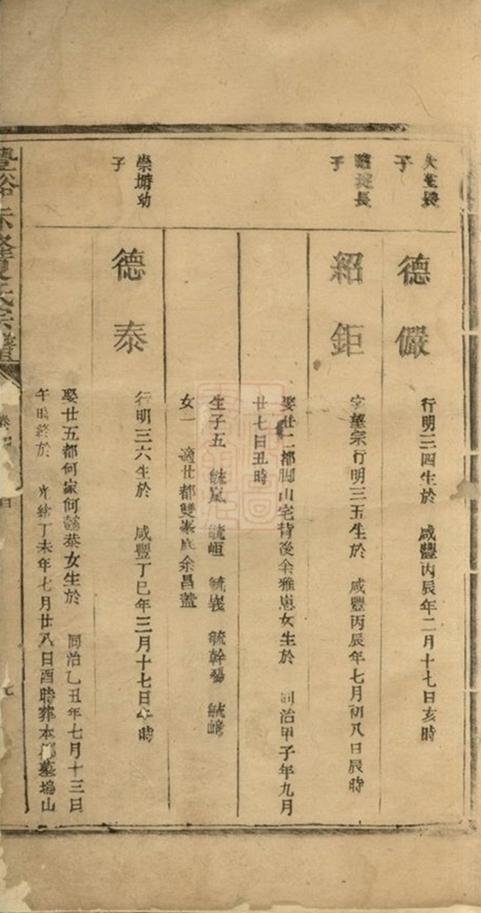 子
德儼
行明三四生於 咸豐丙辰年二月十七日亥時
長
子
紹鉅
字 宗行明三五生於 咸豐丙辰年七月初八日辰時
娶廿二都腳山宅背後余雅 女生於 同治甲子年九月
廿七日丑時
生子五 毓嵐 毓峘 毓 毓幹 毓
女一 適廿都雙 底余昌
崇 幼
子
德泰
行明三六生於 咸豐丁巳年三月十七日 時
娶廿五都何家何 泰女生於 同治乙丑年七月十三日
午時終於 光緒丁未年七月廿八日酉時葬本 墓塢山
豐 氏宗譜
九